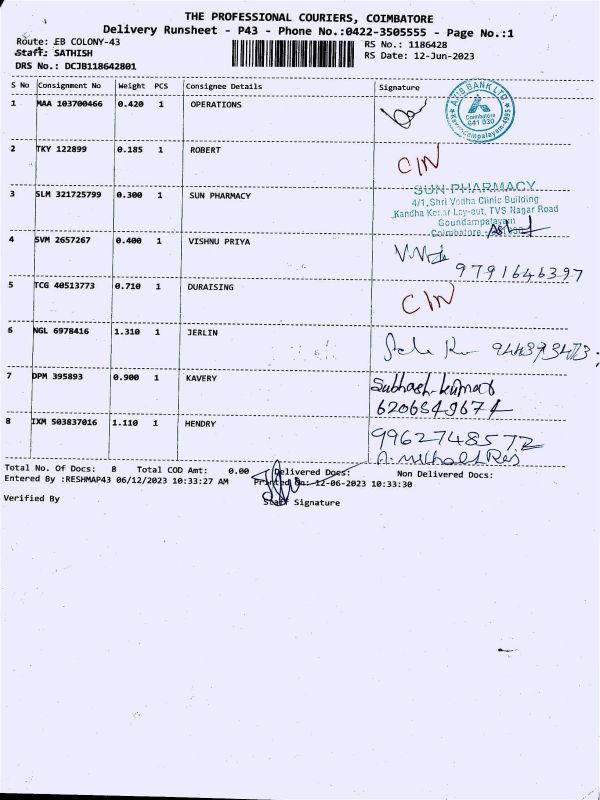 THE PROFESSIONAL COURIERS, COIMBATORE
Delivery Runsheet - P43 - Phone No.:0422-3505555 - Page No.:1
Route: EB COLONY-43 RS No.: 1186428
Staff: SATHISH RS Date: 12-Jun-2023
DRS No.: DCJB118642801
S No Consignment No Weight PCS Consignee Details Signature
1 MAA 103700466 0.420 1 OPERATIONS
AXIS BANK LTD
Coimbatore
641 030
2 TKY 122899 0.185 1 ROBERT
C/N
3 SLM 321725799 0.300 1 SUN PHARMACY
SUN PHARMACY
4/1, Shri Vedha Clinic Building
Lay-out, TVS Nagar Road
Goundampalayam
Coimbatore
4 SVM 2657267 0.400 1 VISHNU PRIYA
9791646397
5 TCG 40513773 0.710 1 DURAISING
C/N
6 NGL 6978416 1.310 1 JERLIN
7 DPM 395893 0.900 1 KAVERY
Subhash kumar
6206549674
8 IXM 503837016 1.110 1 HENDRY
9962748572
Total No. Of Docs: 8 Total COD Amt: 0.00 Delivered Docs: Non Delivered Docs:
Entered By :RESHMAP43 06/12/2023 10:33:27 AM Printed On: 12-06-2023 10:33:30
Verified By Staff Signature